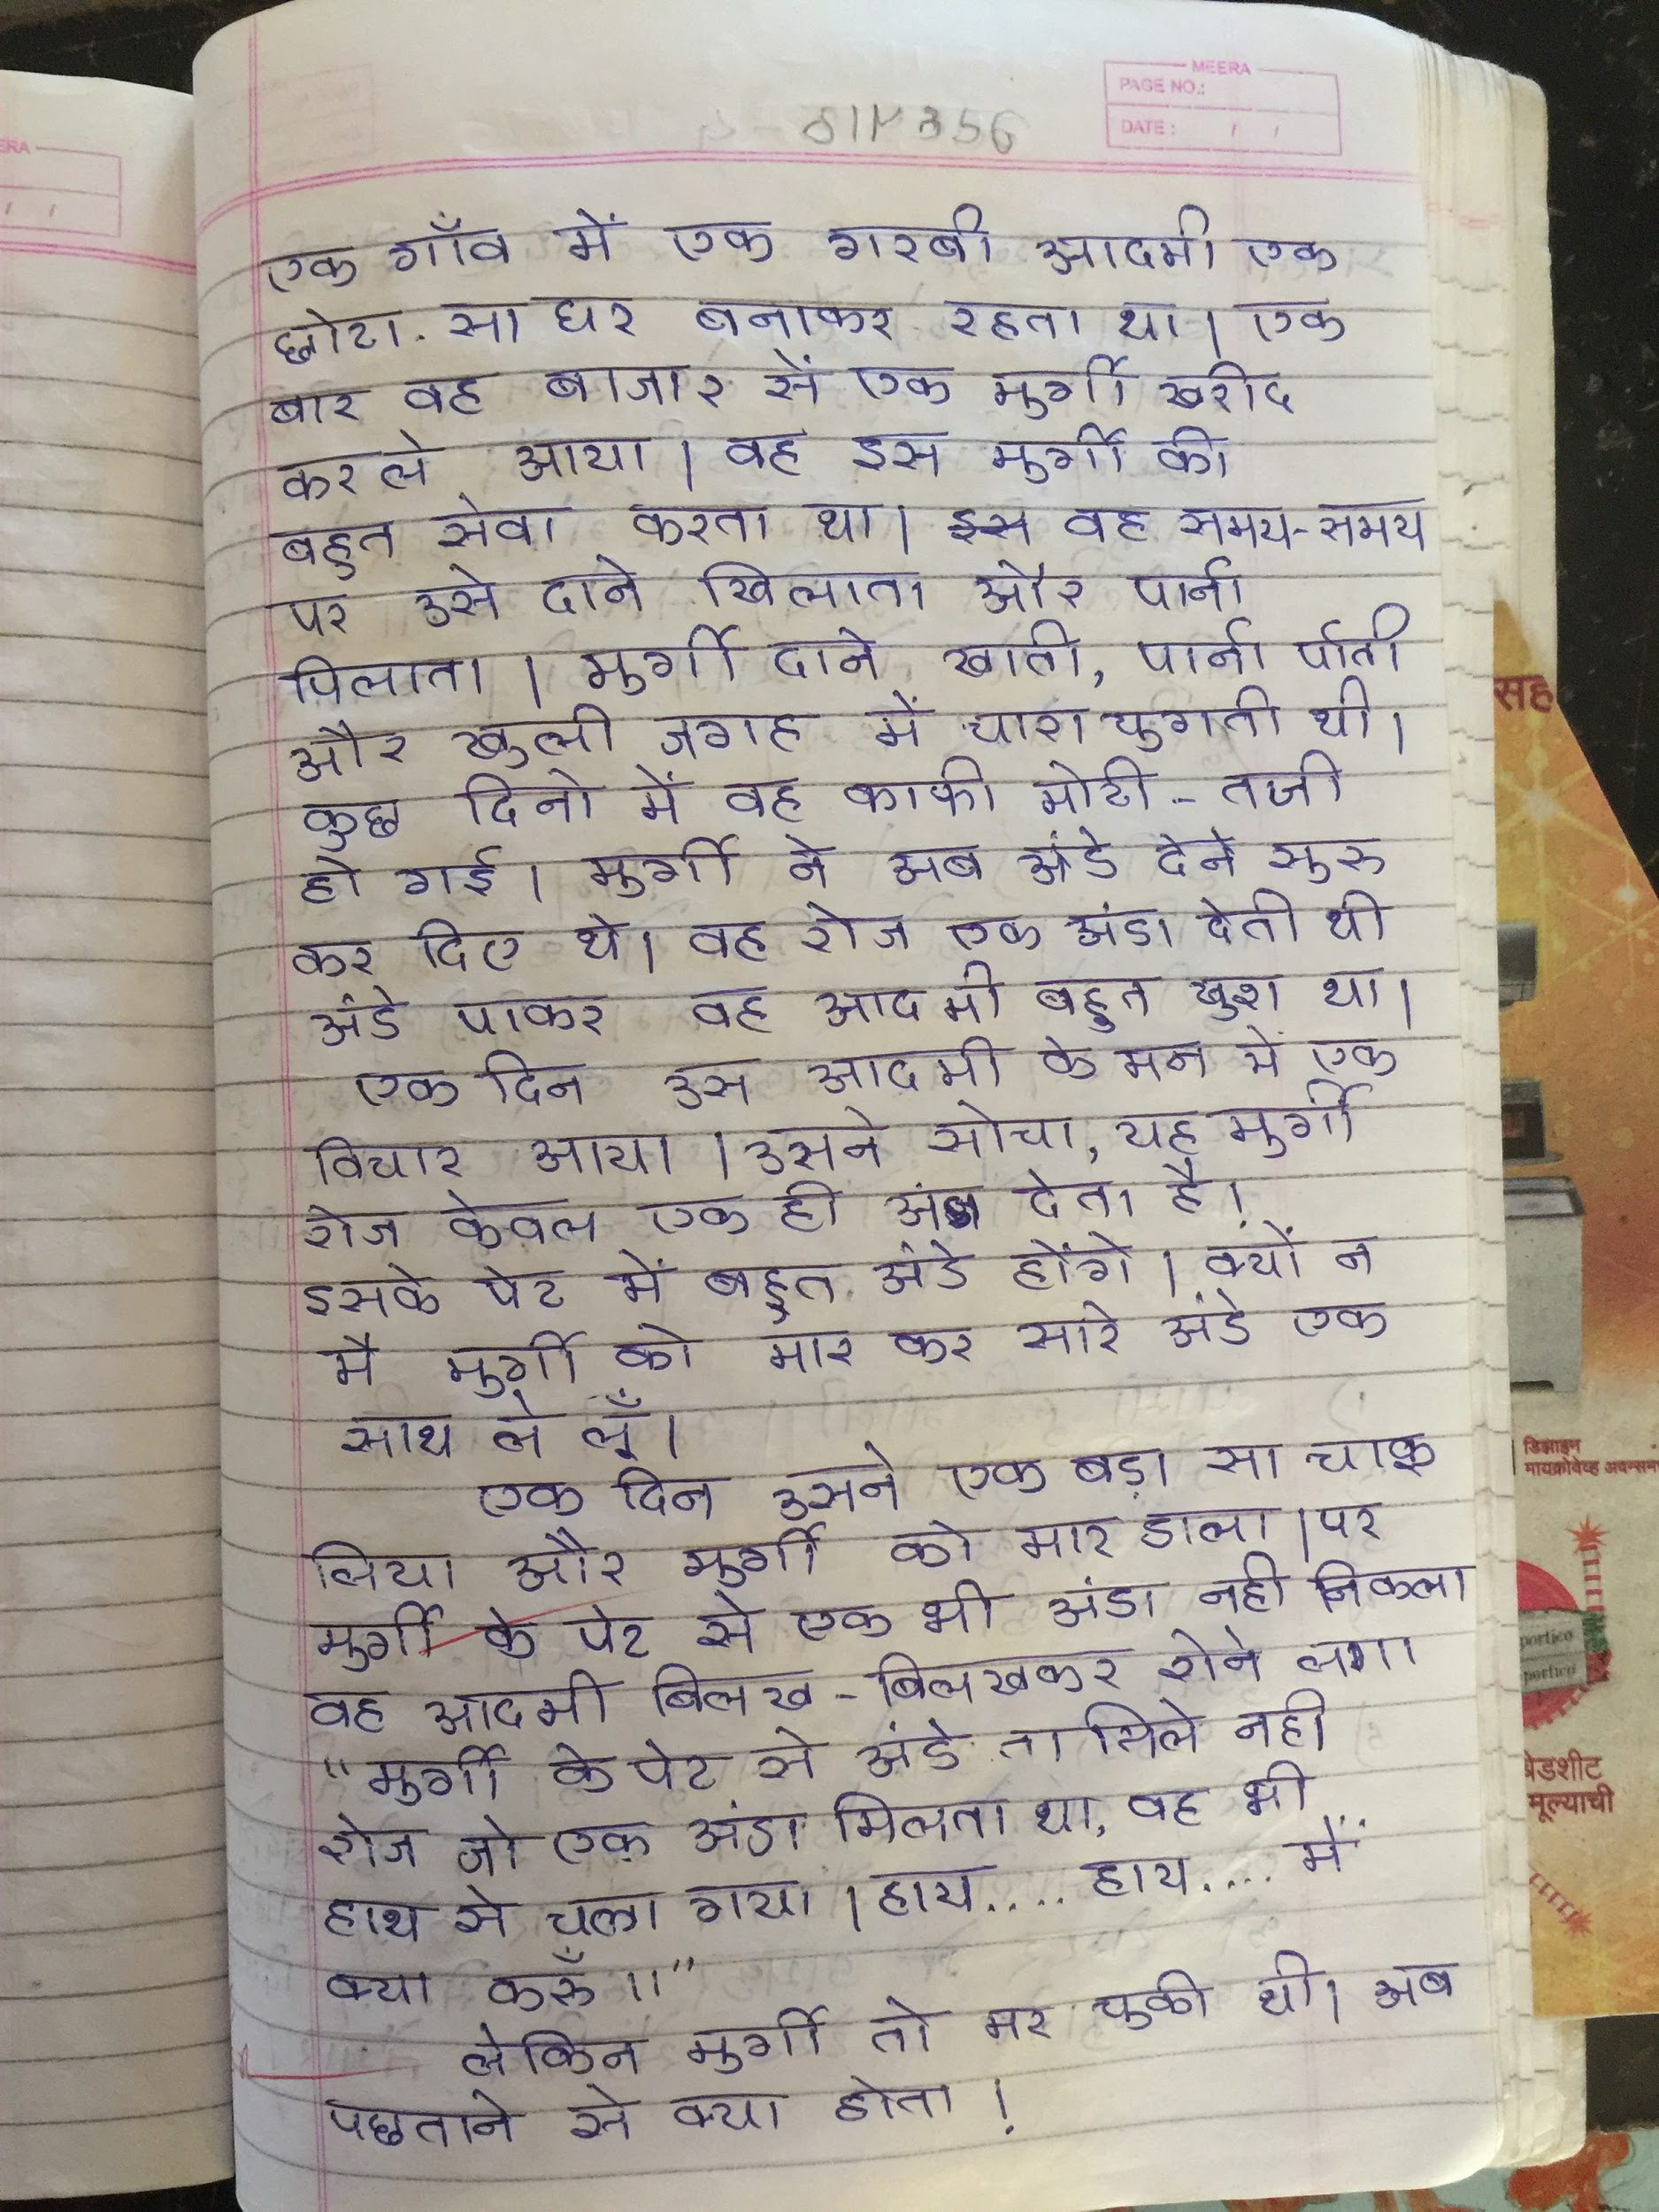 MEERA
PAGE NO.:
DATE : / /
एक गाँव में एक गरबी आदमी एक
छोटा.सा घर बनाकर रहता था। एक
बार वह बाजार सें एक मुर्गी खरीद
कर ले आया। वह इस मुर्गी की
बहुत सेवा करता था। इस वह समय-समय
पर उसे दाने खिलाता और पानी
पिलाता। मुर्गी दाने खाती, पानी पीती
और खुली जगह में चारा चुगती थी।
कुछ दिनो में वह काफी मोटी - तजी
हो गई। मुर्गी ने अब अंडे देने सुरु
कर दिए थे। वह रोज एक अंडा देती थी
अंडे पाकर वह आदमी बहुत खुश था।
एक दिन उस आदमी के मन में एक
विचार आया। उसने सोचा, यह मुर्गी
रोज केवल एक ही देता है।
इसके पेट में बहुत अंडे होंगे। क्यों न
मै मुर्गी को मार कर सारे अंडे एक
साथ ले लूँ।
एक दिन उसने एक बड़ा सा चाकू
लिया और मुर्गी को मार डाला। पर
मुर्गी के पेट से एक भी अंडा नही निकला
वह आदमी बिलख - बिलखकर रोने लगा
"मुर्गी के पेट से अंडे ता मिले नही
रोज जो एक अंडा मिलता था, वह भी
हाथ से चला गया। हाय.... हाय.... में
क्या करुँ।।"
लेकिन मुर्गी तो मर चुकी थी। अब
पछताने से क्या होता!
सह
डिझाइन
मायक्रोवेव्ह अवन्सम
portico
portico
बेडशीट
मूल्याची